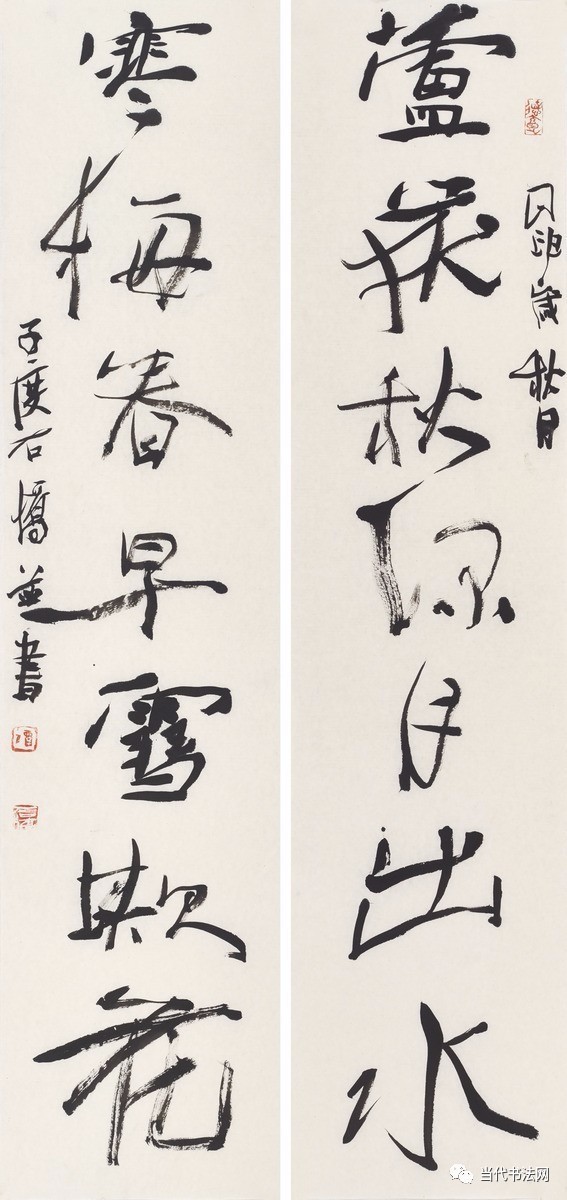 丙申歲秋月
蘆荻秋深月出水
寒梅春早雪欺花
子度石橋並書
当代书法网